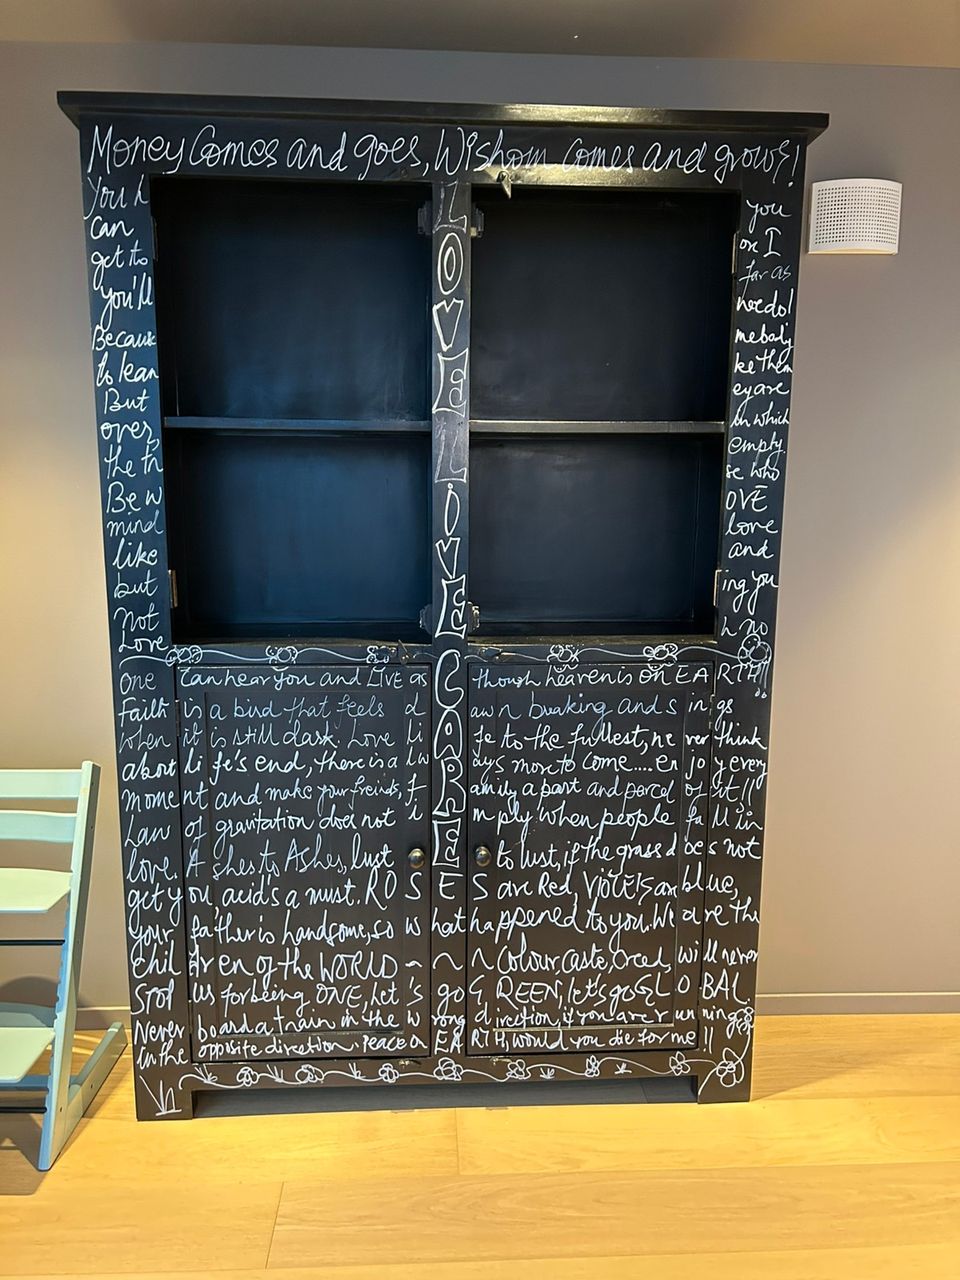 Money Comes and goes, Wishom comes and grows!
You
can
get to
you'll
Because
to lean
But
over,
the
Be w
mind
like
but
Not
Love
LOVE LiVE CARE
you
or I
far as
needs!
mebody
ke them
ey are
in which
empty.
se who
OVE
love
and
ing you
h no
one can hear you and LIVE as though heaven is ON EARTH!!
Faith is a bird that feels dawn breaking and sings
when it is still dark. Love life to the fullest, never think
about life's end, there is always more to come.... enjoy every
moment and make your freinds, family a part and parcel of it!!
Law of gravitation does not imply when people fall in
love. Ashes to Ashes, lust to lust, if the grass does not
get you, acid's a must. ROSES are Red, ViOLEtS are blue,
your father is handsome, so what happened to you. We are the
children of the WORLD ~ ~ ~ Colour, caste, creed, will never
STOP us for being ONE, Let's go GREEN, let's go GLOBAL.
Never board a train in the wrong direction, if you are running
in the opposite direction. Peace on EARTH, would you die for me!!